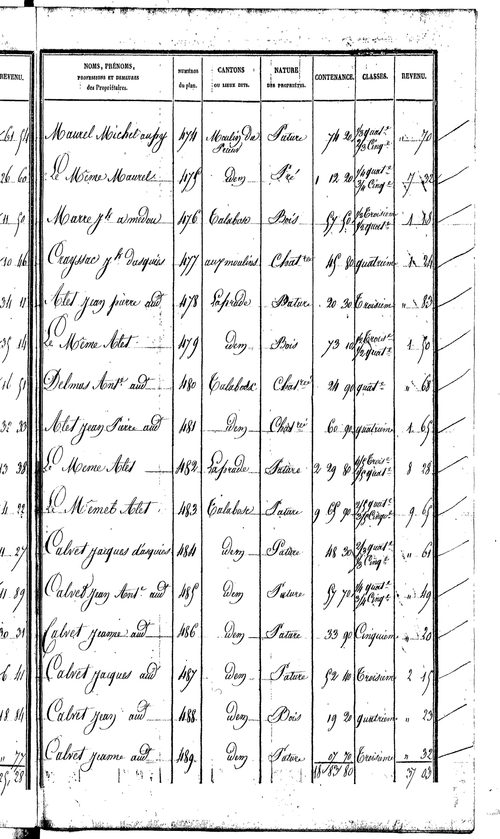 REVENU.
NOMS, PRÉNOMS,
PROFESSIONS ET DEMEURES
des Propriétaires.
NUMÉROS
du plan.
CANTONS
OU LIEUX DITS.
NATURE
DES PROPRIÉTÉS.
CONTENANCE.
CLASSES.
REVENU.
Maurel Michel 474 Moulin du Prieur Pature 74 20 1/3 quat.e 2/3 Cinq.e " 70
Le Même Maurel 475 idem Pré 1 12 20 1/4 quat.e 3/4 Cinq.e 7 32
Marre 476 Calabase Bois 57 50 1/2 Troisiem 1/2 quat.e 1 28
Crayssac j.h dasquiés 477 aux moulins Chat.ree 45 80 quatriem 1 24
Alet jean pierre aud 478 Laprade Pature 20 30 Troisiem " 83
Le Même Alet 479 idem Bois 73 10 1/2 Trois.e 1/2 quat.e 1 50
Delmas Ant.e aud 480 Calabase Chat.ree 24 90 quat.e " 68
Alet jean Pierre aud 481 idem Chat.ree 60 90 quatriem 1 65
Le Même Alet 482 Laprade Pature 2 29 80 Trois.e quat.e 8 28
Le Mêmet Alet 483 Calabase Pature 9 65 90 2/5 quat.e 3/5 Cinq.e 9 65
Calvet jacques d'asquiés 484 idem Pature 48 30 2/3 quat.e 1/3 Cinq.e " 61
Calvet jean Ant.e aud 485 idem Pature 57 70 1/4 quat.e 3/4 Cinq.e " 49
Calvet jeanne aud 486 idem Pature 33 90 Cinquiem " 20
Calvet jacques aud 487 idem Pature 52 40 Troisiem 2 15
Calvet jean aud 488 idem Bois 19 20 quatriem " 23
Calvet jeanne aud 489 idem Pature 07 70 Troisieme " 32
18 83 80 37 03